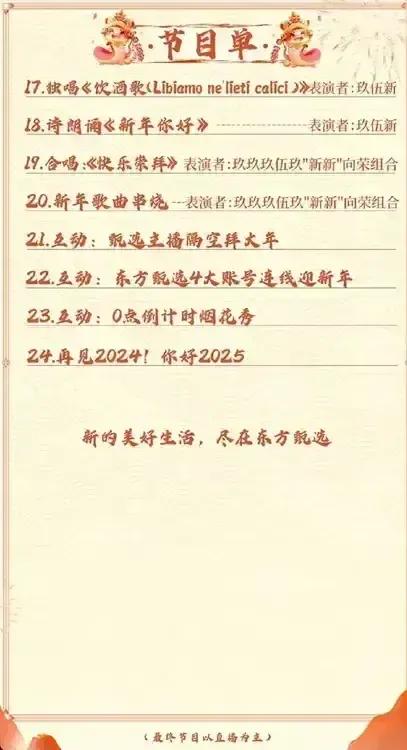 ·节目单·
17.独唱《饮酒歌(Libiamo ne'lieti calici )》表演者:玖伍新
18.诗朗诵《新年你好》 ---------------表演者:玖伍新
19.合唱:《快乐崇拜》 表演者:玖玖玖伍玖"新新"向荣组合
20.新年歌曲串烧 --表演者:玖玖玖伍玖"新新"向荣组合
21.互动：甄选主播隔空拜大年
22.互动：东方甄选4大账号连线迎新年
23.互动：0点倒计时烟花秀
24.再见2024！你好2025
新的美好生活，尽在东方甄选
（最终节目以直播为主）